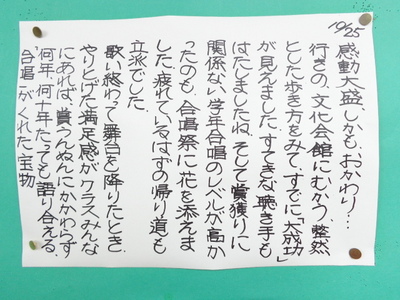 10/25
感動大盛、しかも、おかわり…
行きの、文化会館にむかう、整然
とした歩き方をみて、すでに「大成功」
が見えました。すてきな聴き手も
はたしましたね。そして賞獲りに
関係ない学年合唱のレベルが高か
ったのも、合唱祭に花を添えま
した。疲れているはずの帰り道も
立派でした。
歌い終わって舞台を降りたとき、
やりとげた満足感がクラスみんな
にあれば、賞うんぬんにかかわらず
何年、何十年たっても語り合える、
“合唱”がくれた“宝物